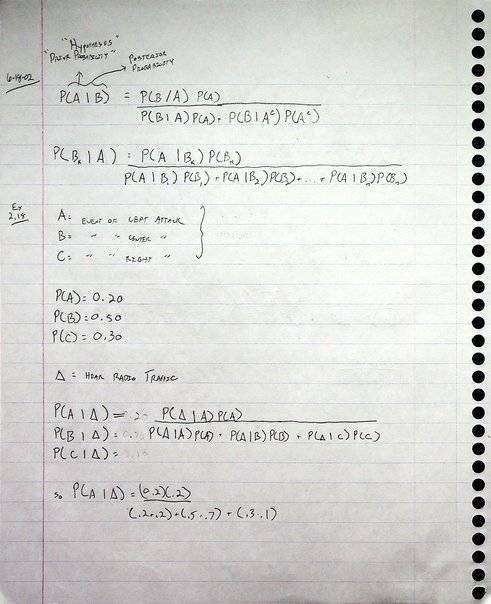 "Hypotheses"
"Prior Probability"
Posterior
Probability
6-18-02
P(A | B) = P(B | A) P(A)
P(B | A) P(A) + P(B | Aᶜ) P(Aᶜ)
P(Bₖ | A) = P(A | Bₖ) P(Bₖ)
P(A | B₁) P(B₁) + P(A | B₂) P(B₂) + ... + P(A | Bₙ) P(Bₙ)
Ex
2.18
A = Event of Left Attack
B = " " Center "
C = " " Right "
P(A) = 0.20
P(B) = 0.50
P(C) = 0.30
Δ = Hear Radio Traffic
P(A | Δ) = P(Δ | A) P(A)
P(B | Δ) = P(Δ | A) P(A) + P(Δ | B) P(B) + P(Δ | C) P(C)
P(C | Δ) =
so P(A | Δ) = (0.2)(.2)
(.2·.2) + (.5·.7) + (.3·.1)